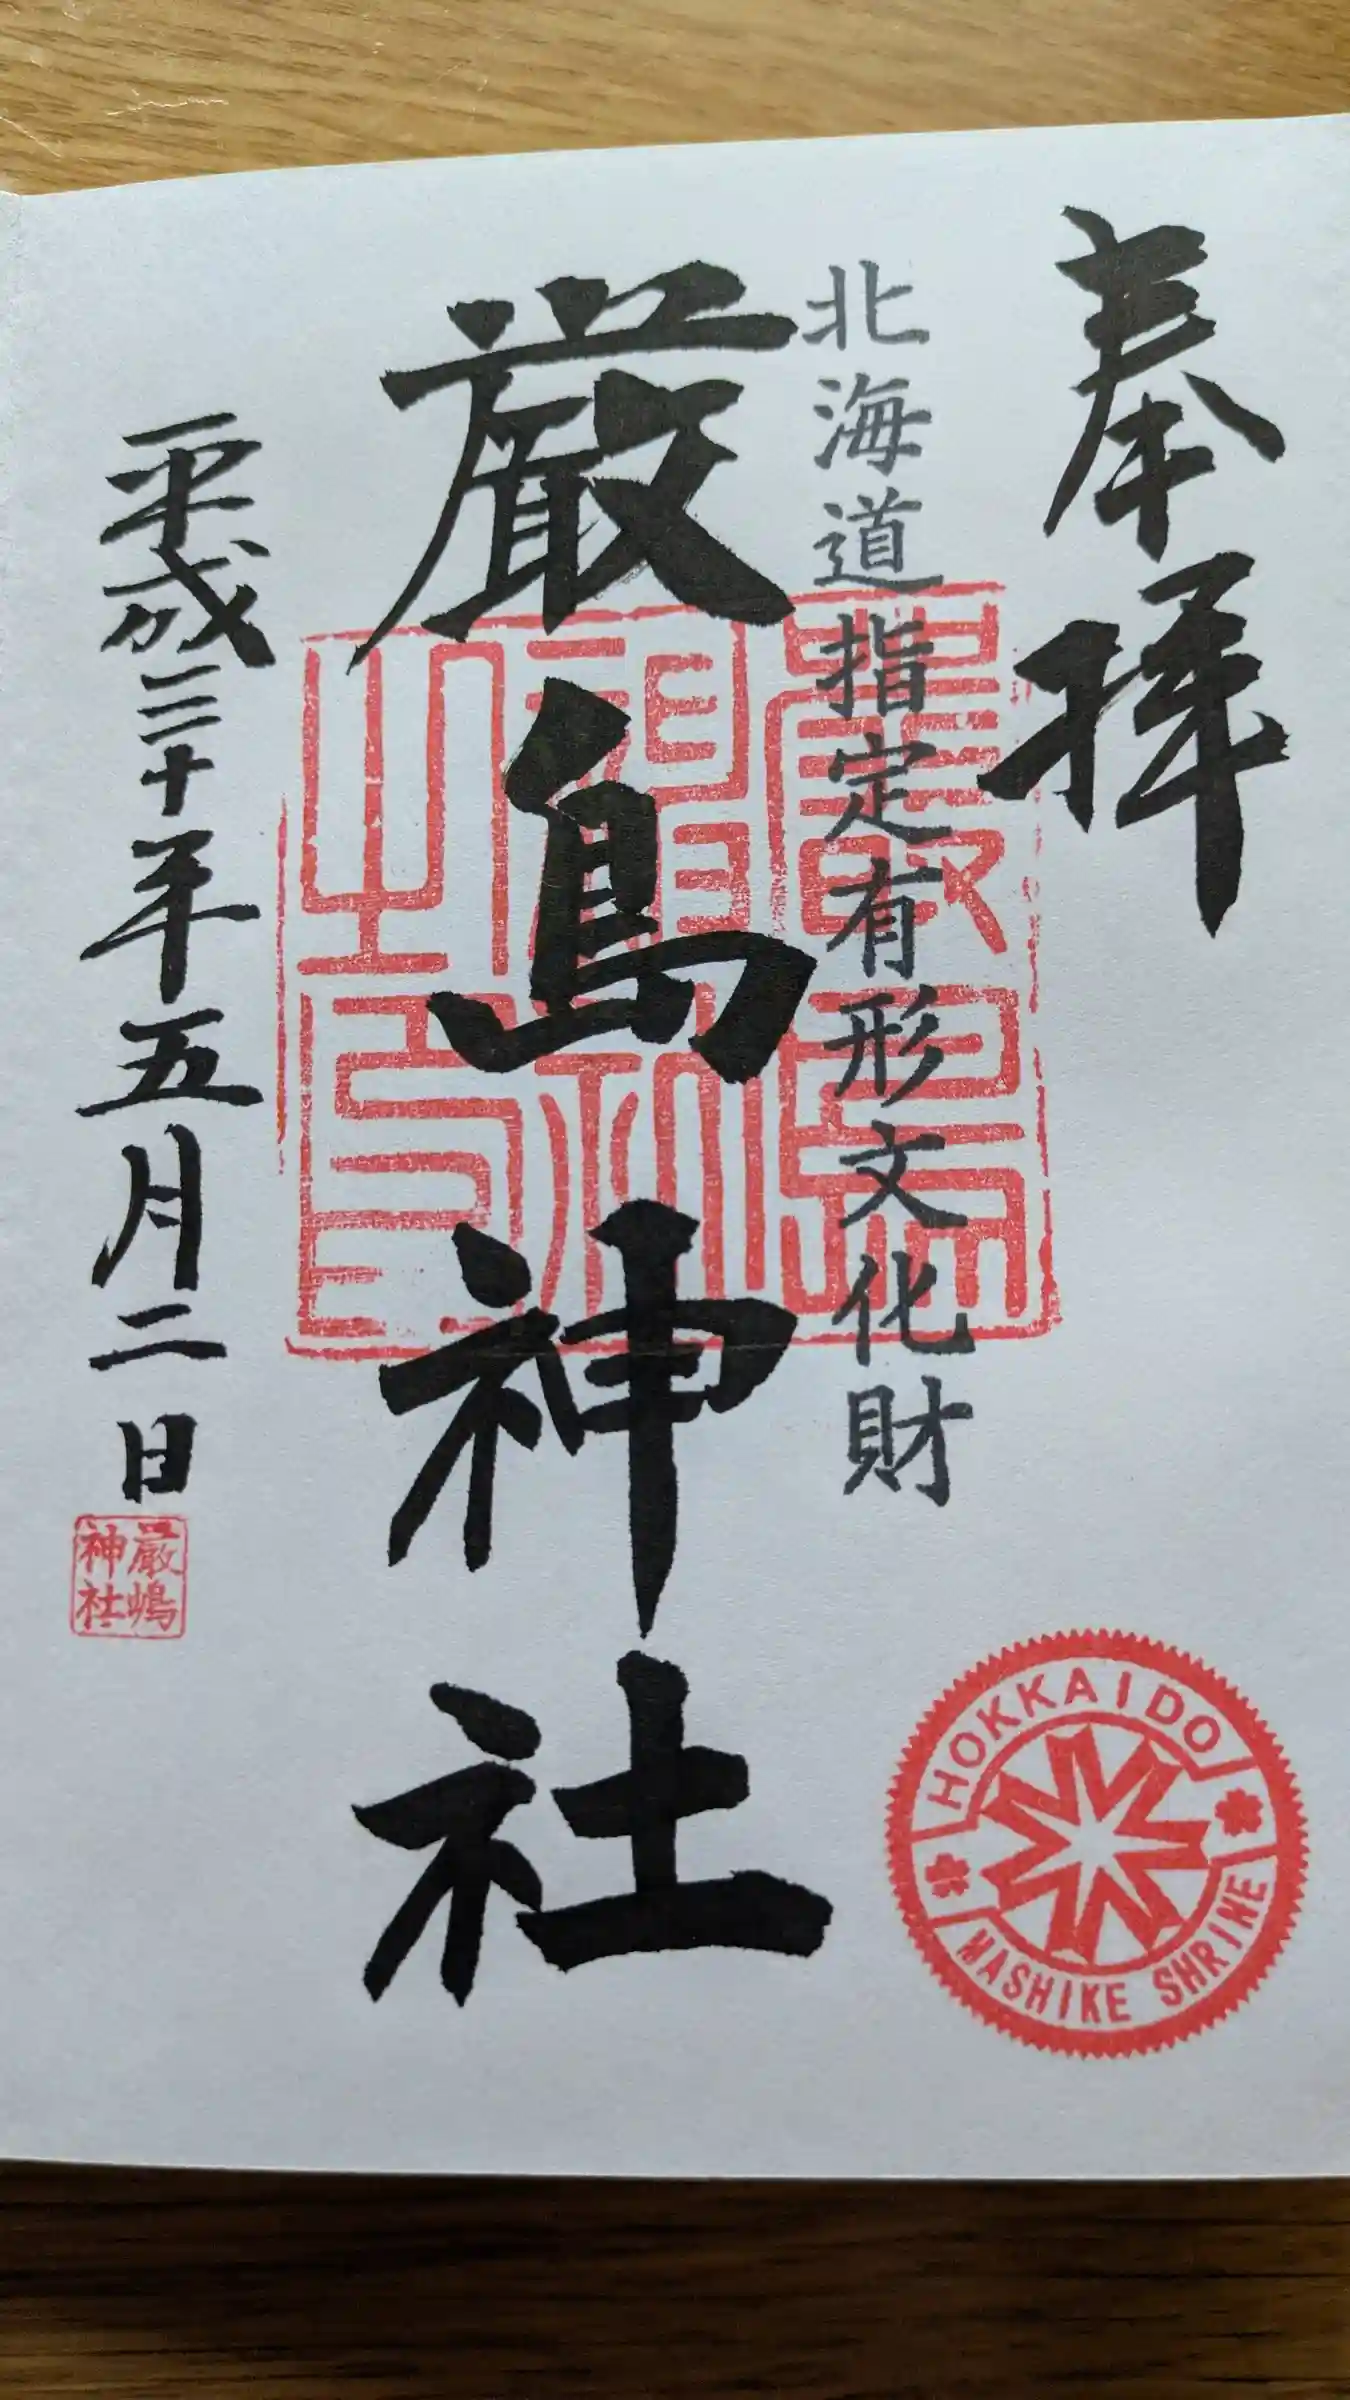 奉拝
北海道指定有形文化財
厳島神社
平成三十年五月二日
厳嶋
神社
嚴島
神社
之印
HOKKAIDO
MASHIKE SHRINE